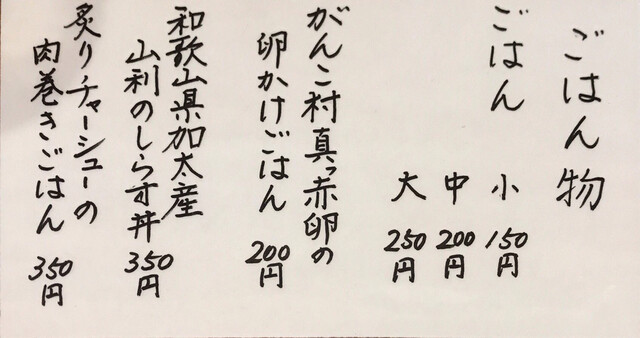 ごはん物
ごはん 小 150円
中 200円
大 250円
がんこ村真っ赤卵の
卵かけごはん 200円
和歌山県加太産
山利のしらす丼 350円
炙りチャーシューの
肉巻きごはん 350円